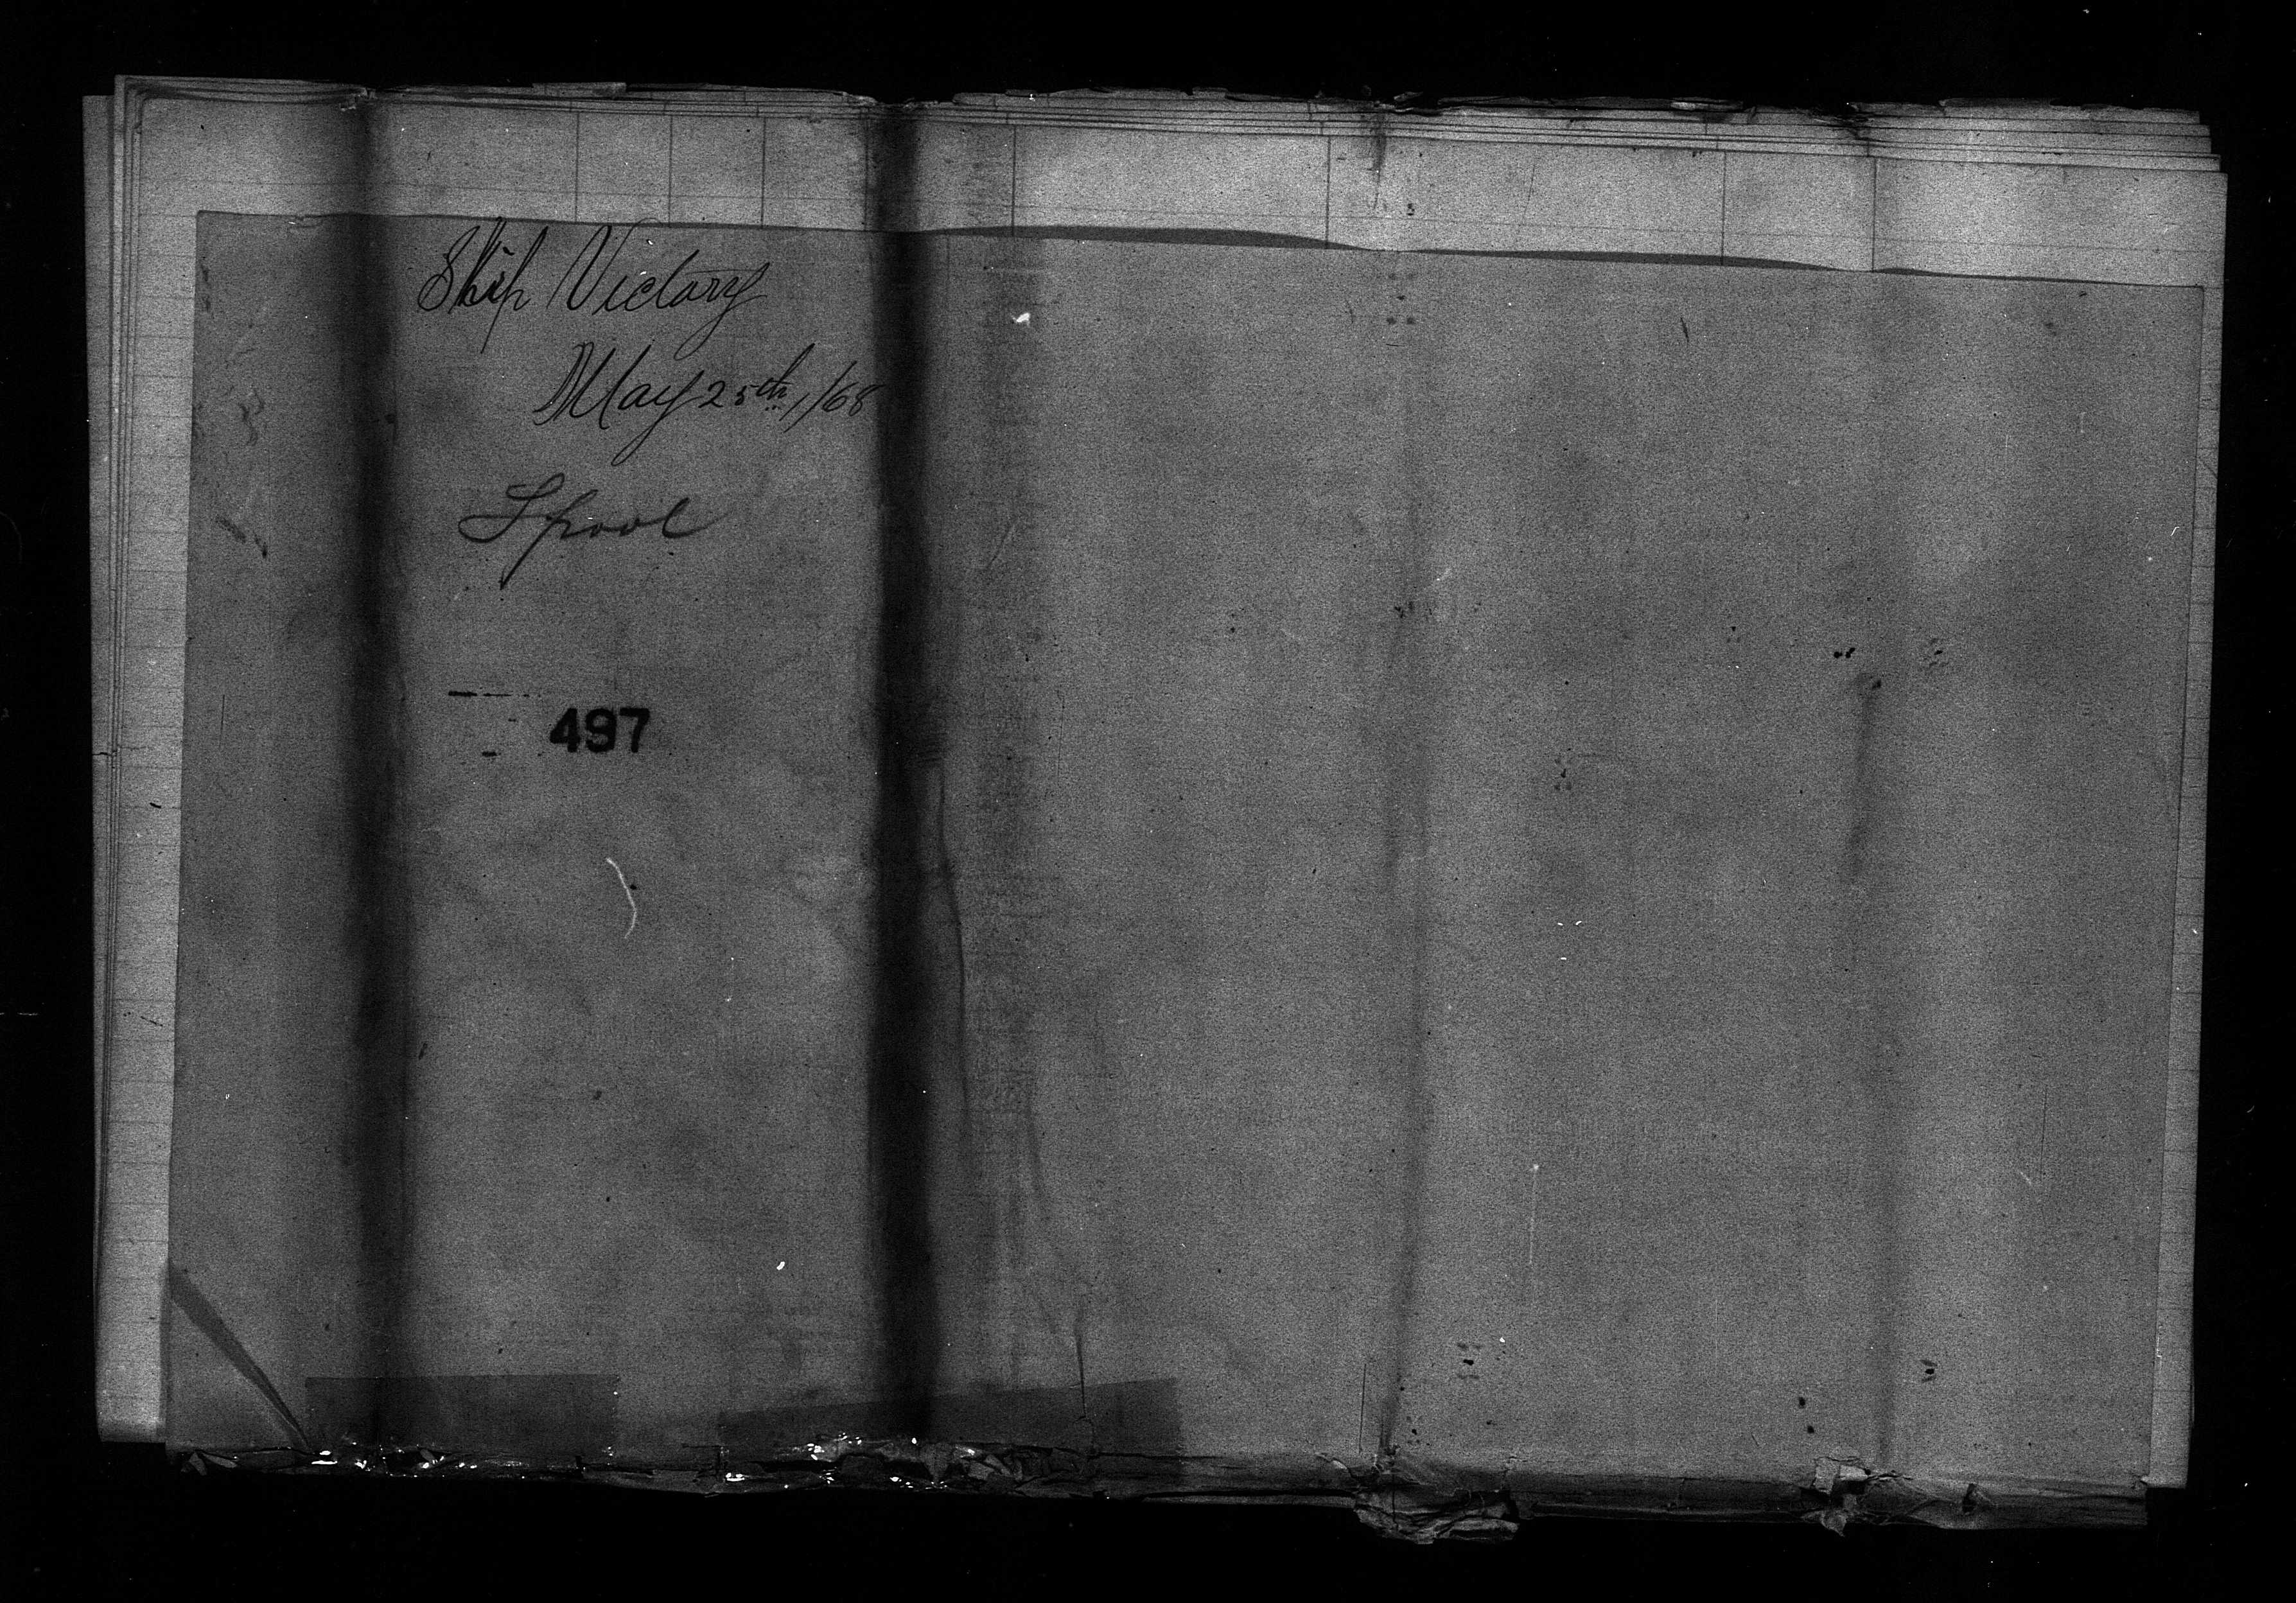 Ship Victory
May 25th, /68
Lpool
497